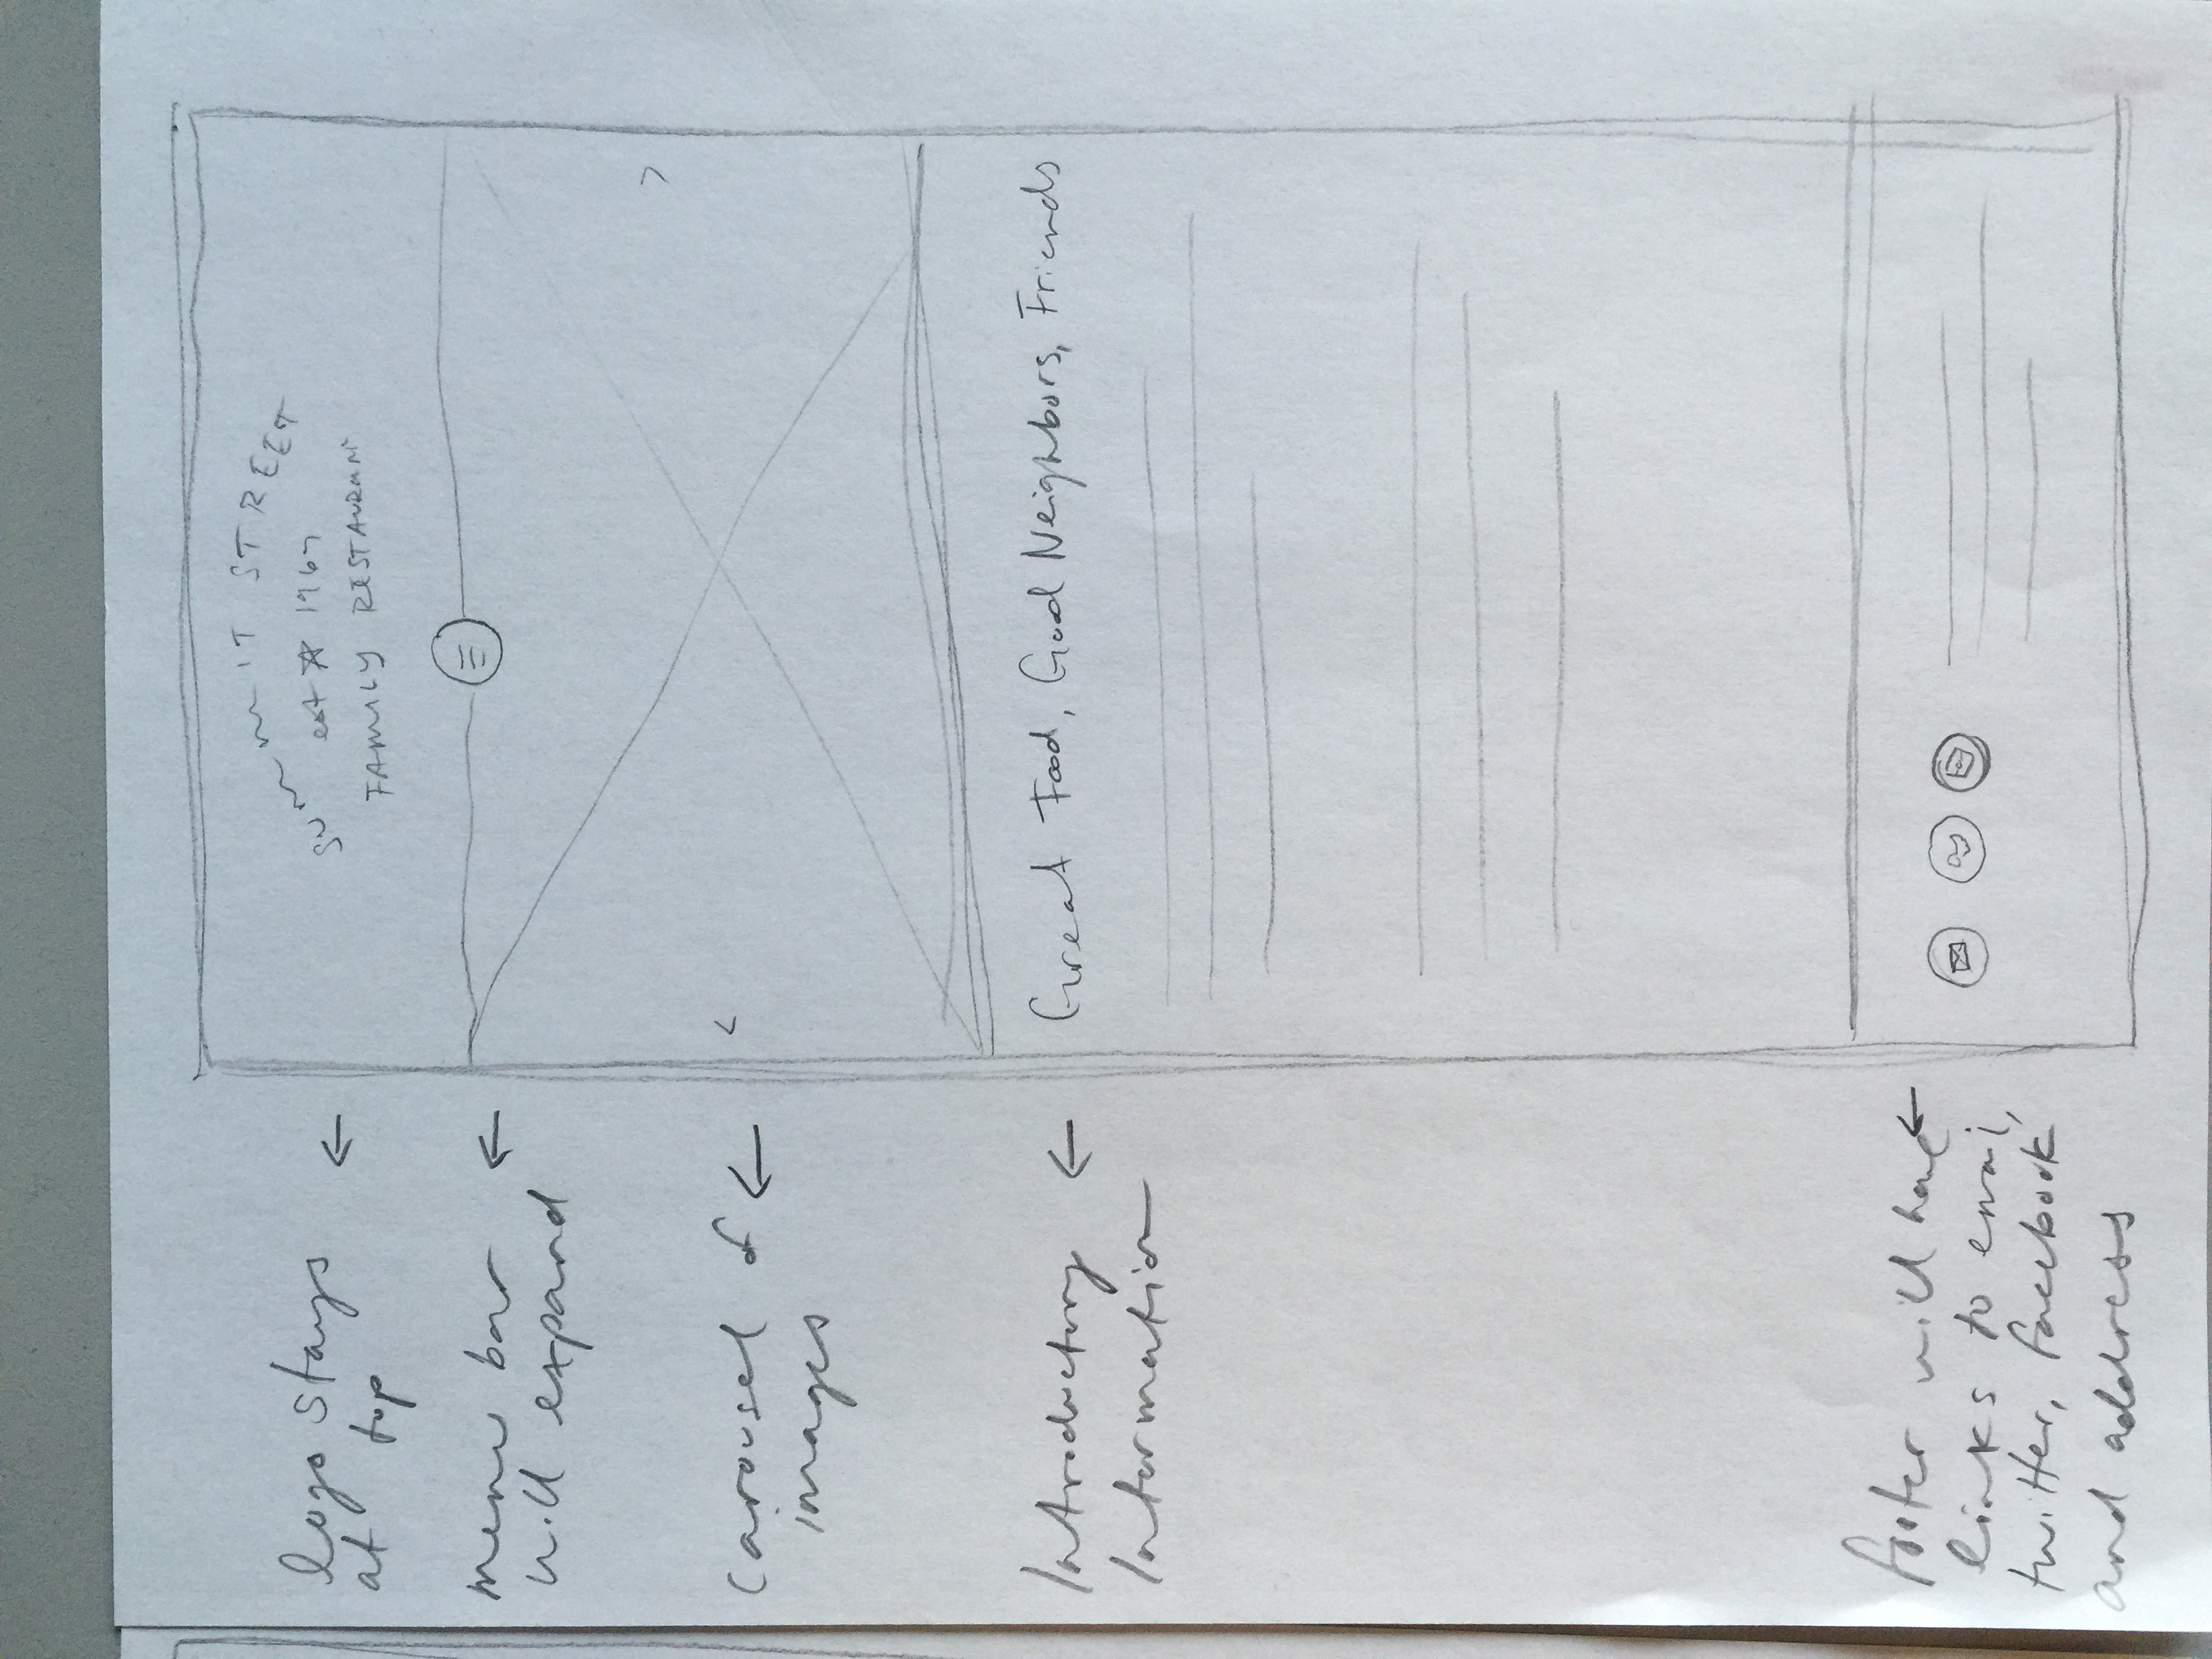 SUMMIT STREET
est 1967
FAMILY RESTAURANT
logo stays
at top
menu bar
will expand
carousel of
images
Introductory
Information
Great Food, Good Neighbors, Friends
footer will have
links to email,
twitter, facebook
and address